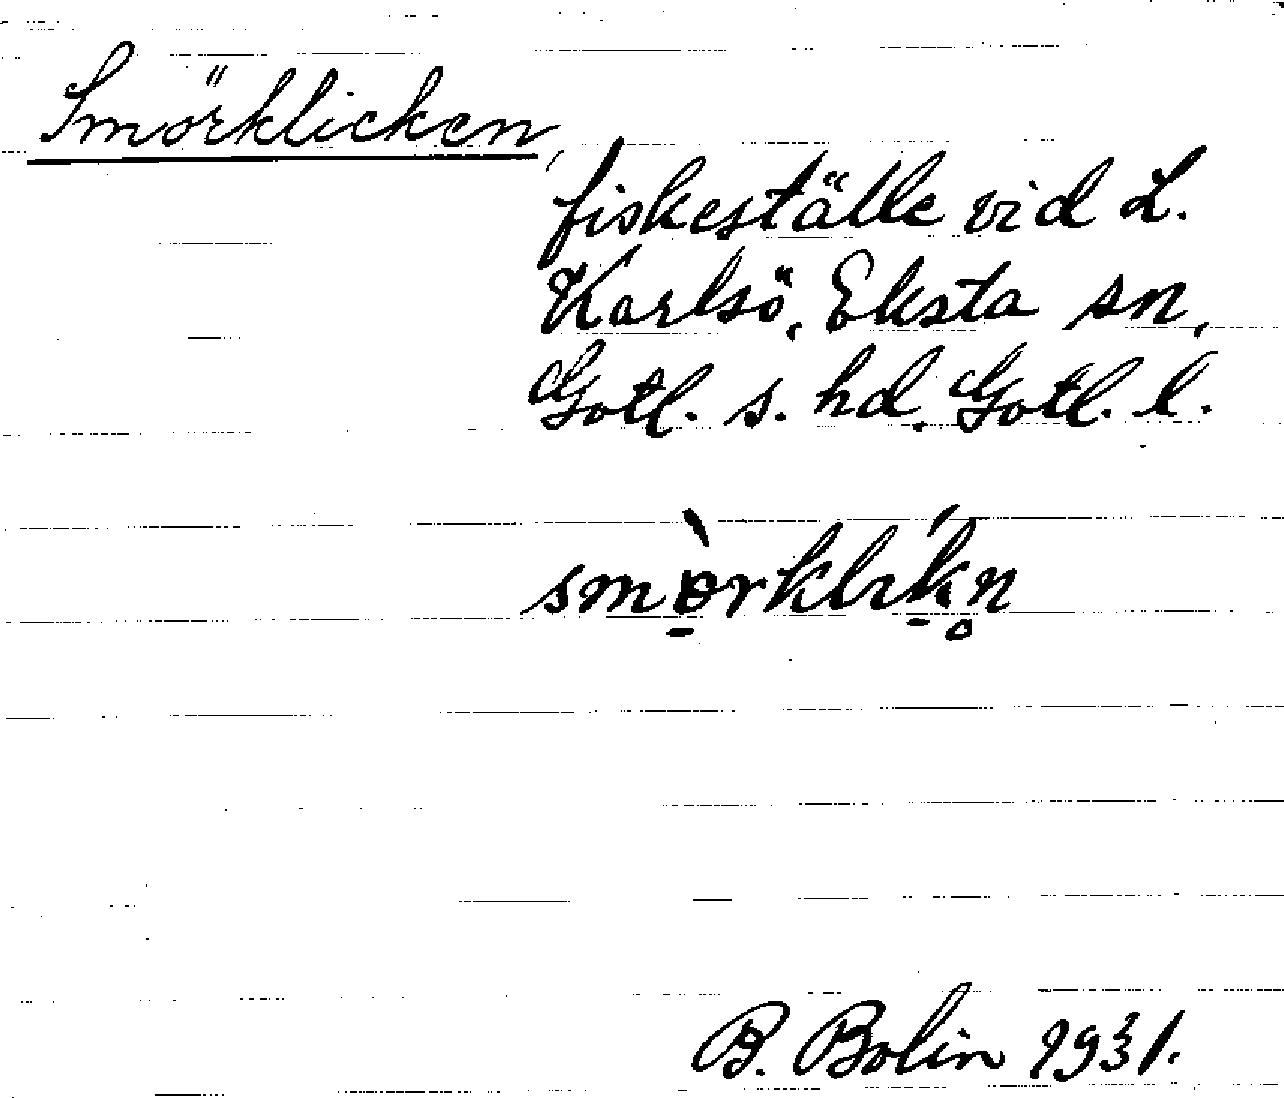 Smörklicken,
fiskeställe vid L.
Karlsö, Eksta sn,
Gotl. s. hd, Gotl. l.
B. Bolin 1931.